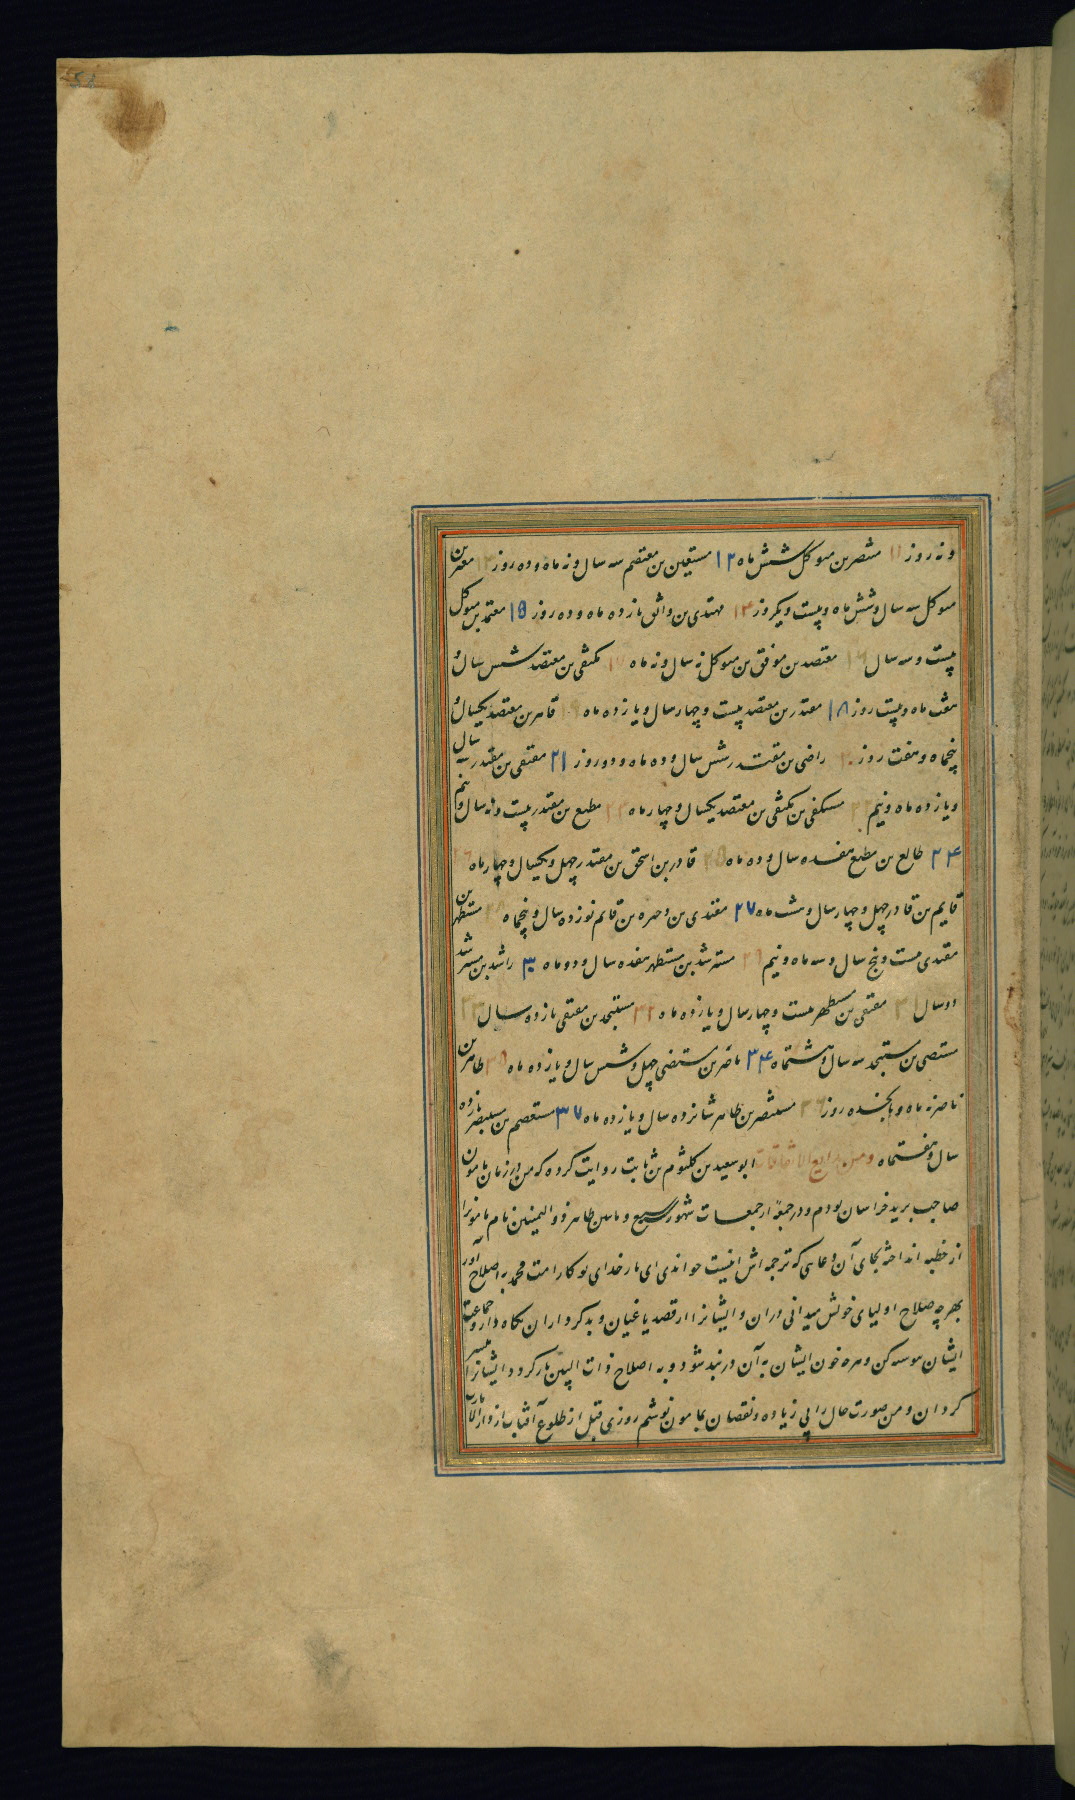 58
و نه روز ۱۱ منتصر بن متوکل شش ماه ۱۲ مستعین بن معتصم سه سال و نه ماه و ده روز ۱۳ معتز بن
متوکل سه سال و شش ماه و بیست و یکروز ۱۴ مهتدی بن واثق یازده ماه و ده روز ۱۵ معتمد بن متوکل
بیست و سه سال ۱۶ معتضد بن موفق بن متوکل نه سال و نه ماه ۱۷ مکتفی بن معتضد شش سال و
هفت ماه و بیست روز ۱۸ مقتدر بن معتضد بیست و چهار سال و یازده ماه ۱۹ قاهر بن معتضد یکسال و
پنجماه و هفت روز ۲۰ راضی بن مقتدر شش سال و ده ماه و دو روز ۲۱ متقی بن مقتدر سه سال
و یازده ماه و نیم ۲۲ مستکفی بن مکتفی بن معتضد یکسال و چهار ماه ۲۳ مطیع بن مقتدر بیست و نه سال و نیم
۲۴ طایع بن مطیع هفده سال و ده ماه ۲۵ قادر بن اسحق بن مقتدر چهل و یکسال و چهار ماه ۲۶
قایم بن قادر چهل و چهار سال و هشت ماه ۲۷ مقتدی بن بن قائم نوزده سال و پنجماه ۲۸ مستظهر بن
مقتدی بیست و پنج سال و سه ماه و نیم ۲۹ مسترشد بن مستظهر هفده سال و دو ماه ۳۰ راشد بن مسترشد
دو سال ۳۱ مقتفی بن مستظهر بیست و چهار سال و یازده ماه ۳۲ مستنجد بن مقتفی یازده سال ۳۳
مستضی بن مستنجد سه سال و هشتماه ۳۴ ناصر بن مستضی چهل و شش سال و یازده ماه ۳۵ ظاهر بن
ناصر نه ماه و پانجده روز ۳۶ مستنصر بن ظاهر شانزده سال و یازده ماه ۳۷ مستعصم بن مستنصر پانزده
سال و هفتماه و من بدایع الاتفاقات ابو سعید بن کلثوم بن ثابت روایت کرده که من در زمان مامون
صاحب برید خراسان بودم و در جمعه از جمعات شهور سبع و مأتین طاهر ذو الیمینین نام مامونرا
از خطبه انداخته بجای آن دعایی که ترجمه اش اینست خواندی ای بار خدای تو کار امت محمد به اصلاح آور
بهر چه صلاح اولیای خویش میدانی دران و ایشانرا از قصد یاغیان و بدکرداران نکاه دار و جماعت
ایشان کن و خون ایشان به آن در بند شود و به اصلاح ذات البین بازکردد ایشانرا میسر
کردان و من صورت حال را بی زیاده و نقصان بمامون نوشتم روزی قبل از طلوع آفتاب از